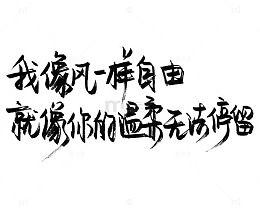 我像风一样自由
就像你的温柔无法停留